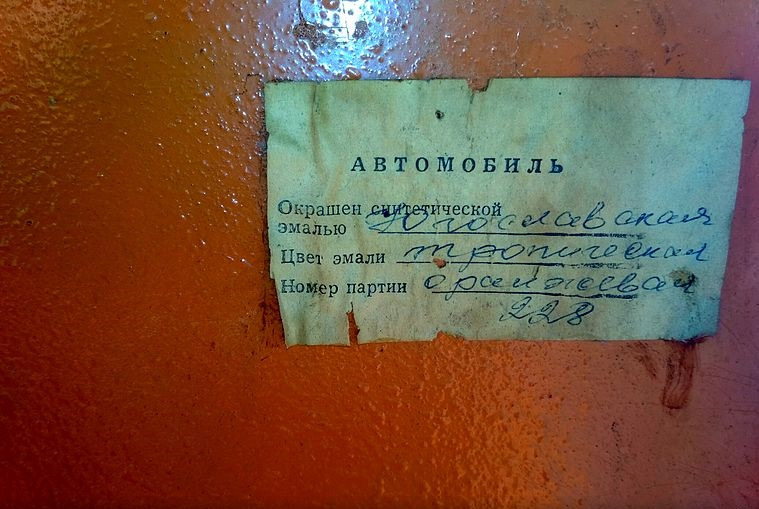 АВТОМОБИЛЬ
Окрашен синтетической
эмалью Югославская
Цвет эмали тропическая
Номер партии оранжевая
228